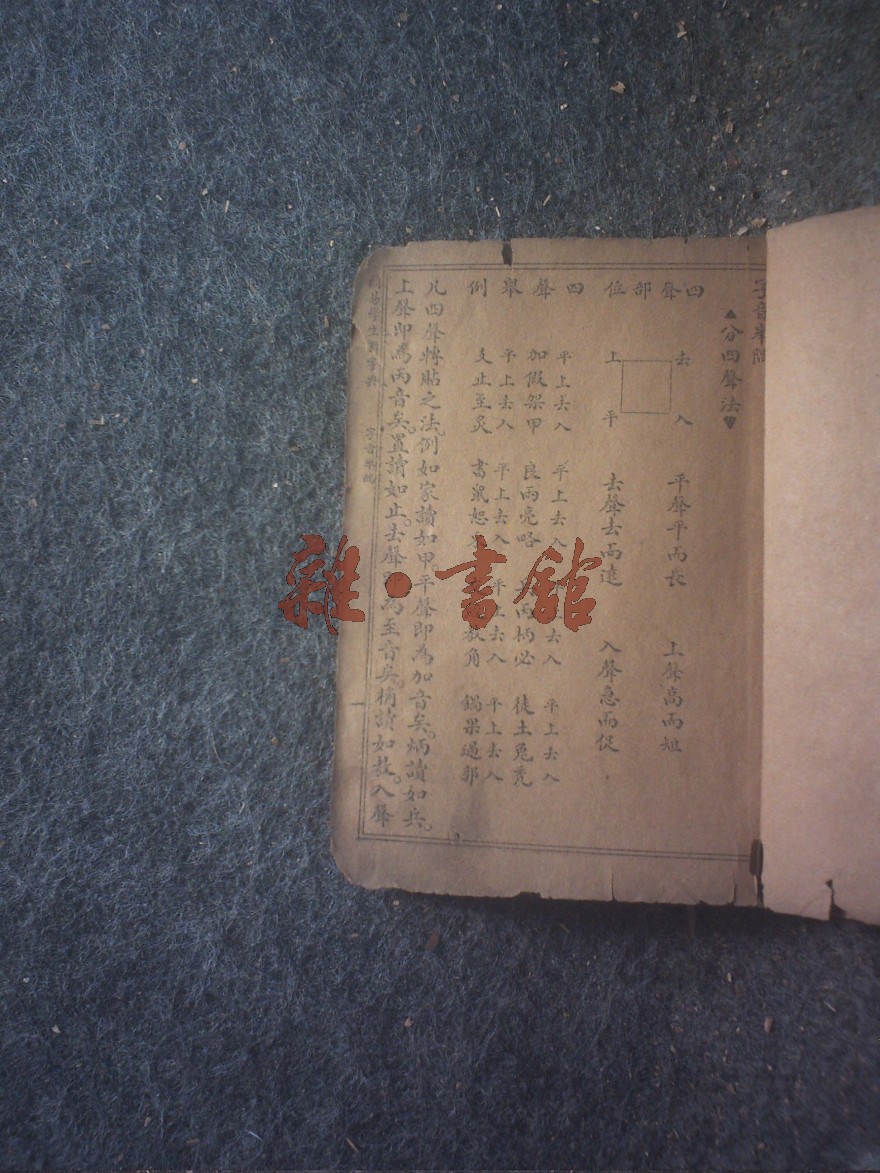 字音舉隅
▲分四聲法▼
四聲部位
去 入
上 平
平聲平而長 上聲高而短
去聲去而遠 入聲急而促
四聲舉例
平上去入 平上去入 上去入 平上去入
加假架甲 良兩亮略 丙柄必 徒土兔禿
平上去入 平上去入 平上去入 平上去入
支止至炙 書鼠恕 教角 鍋果過郭
凡四聲轉貼之法。例如家讀如甲平聲即為加音矣。炳讀如兵。
上聲即為丙音矣。置讀如止。去聲即為至音矣。稱讀如教。入聲
學生 字典 字音舉隅
一
雜·書館